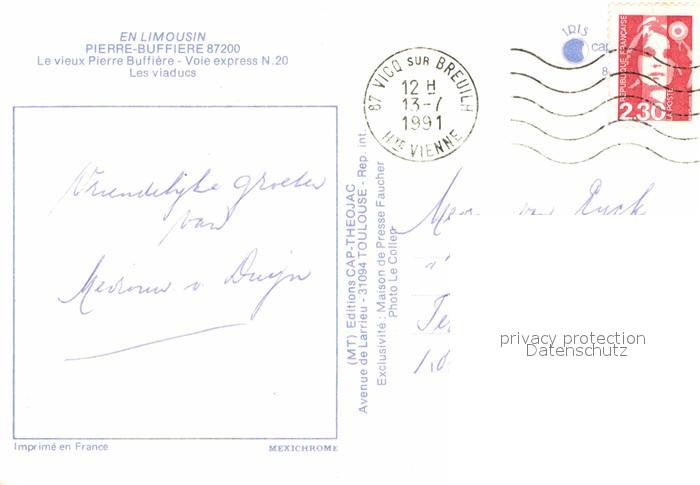 EN LIMOUSIN
PIERRE-BUFFIERE 87200
Le vieux Pierre Buffière - Voie express N.20
Les viaducs
Vriendelijke groeten
van
Mevrouw v Duijn
Imprimé en France
MEXICHROME
(MT) Editions CAP-THEOJAC
Avenue de Larrieu - 31094 TOULOUSE - Rep. int.
Exclusivité : Maison de Presse Faucher
Photo Le Collen
87 VICQ SUR BREUILH
12 H
13-7
1991
HTE VIENNE
IRIS
REPUBLIQUE FRANÇAISE
2,30
LA POSTE
van
privacy protection
Datenschutz